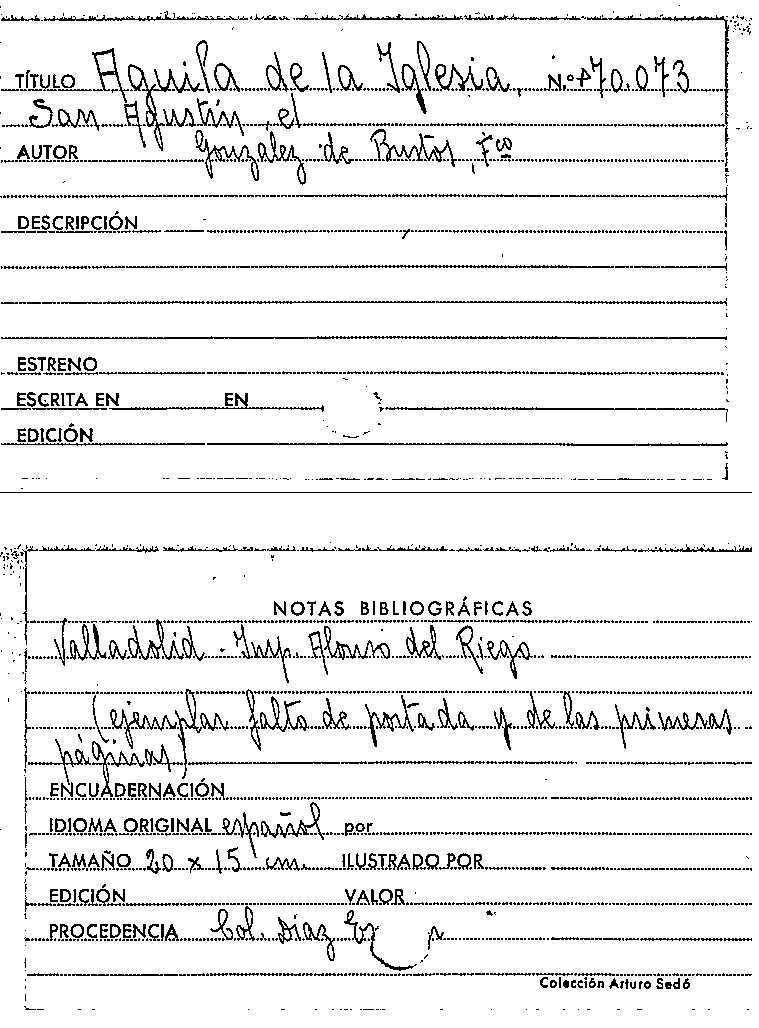 TÍTULO Aguila de la Iglesia, N.º 70.073
San Agustín, el
AUTOR González de Bustos, Fco
DESCRIPCIÓN
ESTRENO
ESCRITA EN EN
EDICIÓN
NOTAS BIBLIOGRÁFICAS
Valladolid - Imp. Alonso del Riego
(ejemplar falto de portada y de las primeras
páginas)
ENCUADERNACIÓN
IDIOMA ORIGINAL español por
TAMAÑO 20 x 15 cm. ILUSTRADO POR
EDICIÓN VALOR
PROCEDENCIA Col. Díaz
Colección Arturo Sedó